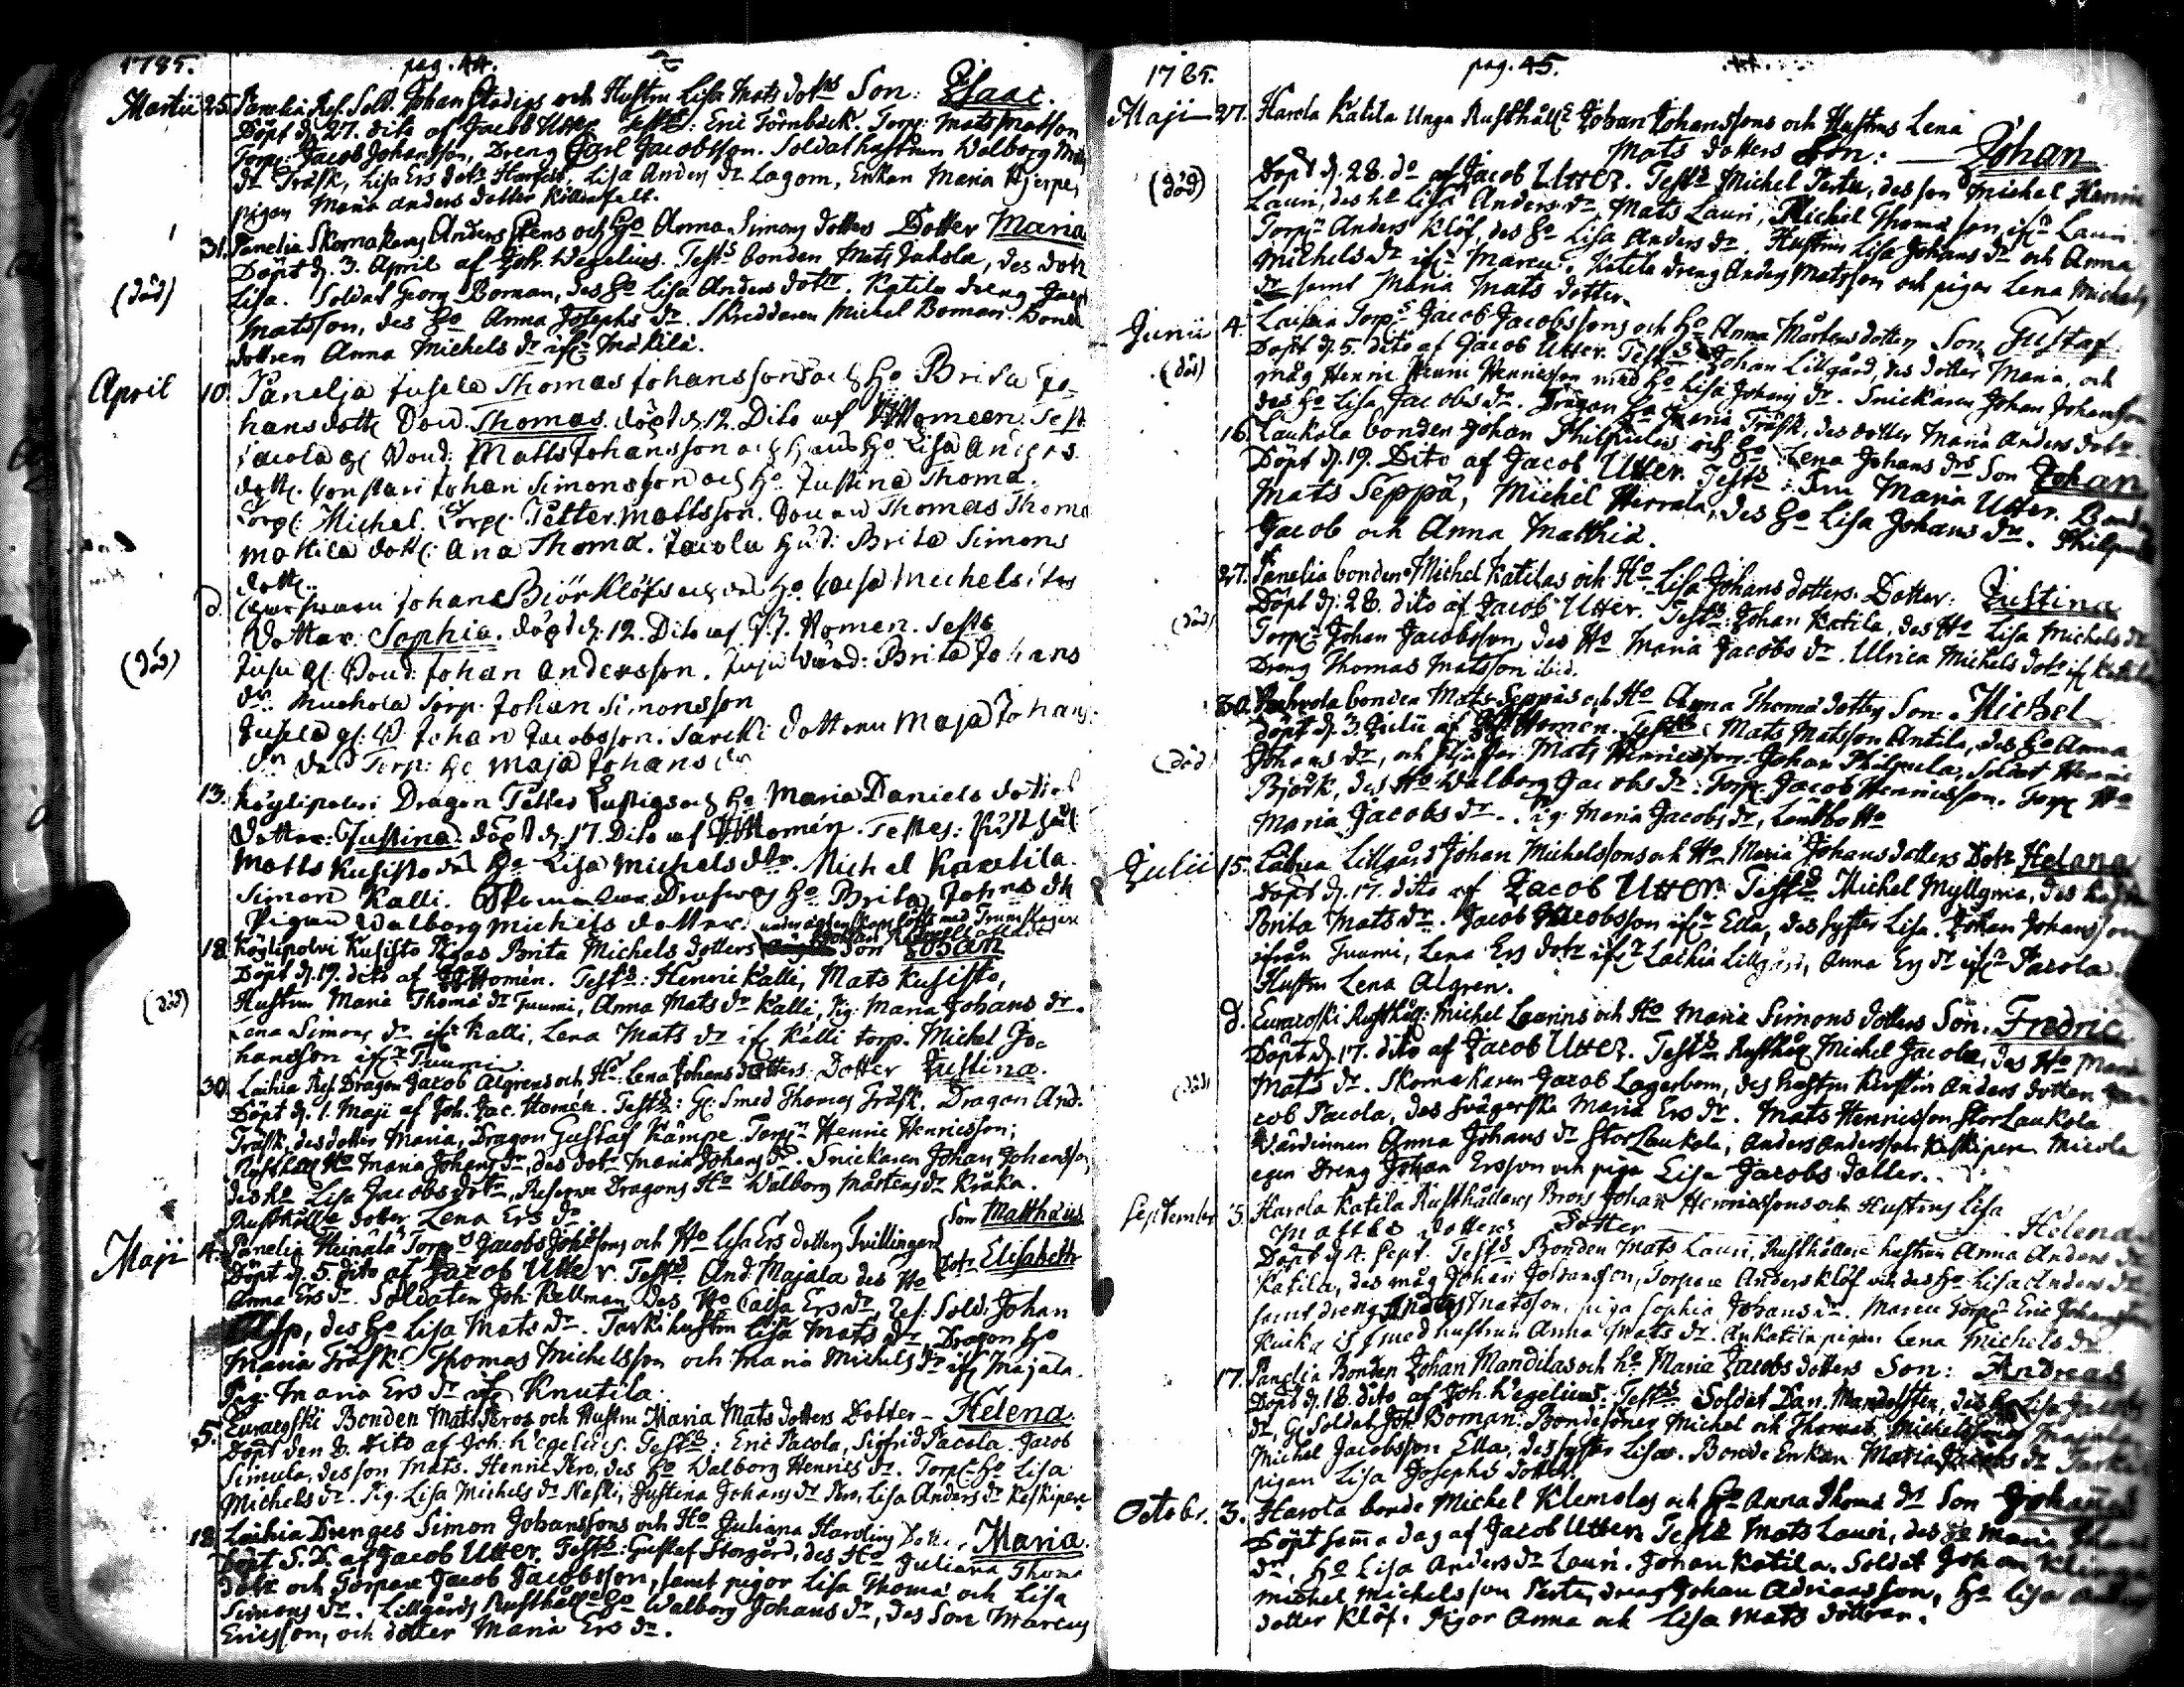 1785. pag. 44.
Martii 25. Panelia Res. Sold. Johan Stadigs och Hustru Lisa Mats dotrs Son: Isaac.
Döpt d. 27. dito af Jacob Utter Test: Eric Törnback. Torp: Mats Matsson
Torp: Jacob Johansson, Dreng Carl Jacobsson. Soldat hustrun Walborg
dr Träsk, Lisa Ers dotr, Lisa Anders dr Lagom, Enkan Maria Hjerpe,
pigan Maria Anders dotter
31. Panelia Skomakarens Anders Stens och Ho Anna Simons dotters Dotter Maria
Döpt d. 3. April af Joh. Wegelius. Tests bonden Mats Jakola, des dotr
(död) Lisa. Soldat Georg Boman, des Ho Lisa Anders dottr. Katila dreng Jacob
Matsson, des Ho Anna Josephs dr. Skreddaren Michel Boman. Bonde
dottren Anna Michels dr ifr Mäkilä.
April 10. Panelja Jusela Thomas Johanssons och Ho Brita Jo-
hans dotte Thomas. döpt d. 12. Dito af Homeen. Test
Jacola Bond: Matts Johansson och hans Ho Lisa Anders
dotte. Johan Simonsson och Ho Justina Thoma.
Torp: Michel. Torp: Petter Mattsson. Thomas Thoma
Mattila dotte: Ana Thoma. Jacola Brita Simons
dotte.
d. Johans Biörklöfs och Ho Caisa Michels
Dotter: Sophia. döpt d. 12. Dito af J. J. Homen. Tests
(död) Bond: Johan Andersson. Brita Johans
dr. Muchola Torp: Johan Simonsson
Jusela Johan Jacobsson. Sarcki dottern Maja Johans
dr Torp: Ho Maja Johans dr
13. Köylipolvi Dragon Petter Lustigs och Ho Maria Daniels dotter
dotter: Justina. döpt d. 17. Dito af Homén. Testes:
Matts Kusisto des Ho Lisa Michels dtr. Michel Karttila.
Simon Kalli. Ho Brita Johns dtr
Pigan Walborg Michels dotter. under ägtenskaps löfte med Trumslagare
18. Köylipolvi Kusisto Pigas Brita Michels dotters Son Johan
Döpt d. 19. dito af Homén. Tests: Henric Kalli, Mats Kusisto,
(död) Hustru Maria Thoma dr Tuumi, Anna Mats dr Kalli, Pig: Maria Johans dr.
Lena Simons dr ifr Kalli, Lena Mats dr ifr Kalli torp. Michel Jo-
hansson ifr Tuumi.
30. Laihia Res. Dragon Jacob Algrens och Ho Lena Johans dotters: Dotter Justina.
Döpt d. 1. Maji af Joh. Jac. Homén. Tests: Gl: Smed Thomas Träsk. Dragon And.
Träsk, des dotter Maria, Dragon Gustaf Kämpe. Torpn Henric Henricsson;
Rusthålls Ho Maria Johans dr, des dotr Maria Johans dr. Snickaren Johan Johansson
des Ho Lisa Jacobs dotr, Reserve Dragons Ho Walborg Mårtens dr Kråka.
Rusthålls dotter Lena Ers dr
Maji 4. Panelia Heinälä Torps Jacobs Johanssons och Ho Lisa Ers dotters Tvillingar Son Matthæus
Döpt d. 5. dito af Jacob Utter. Tests And. Majala des Ho Dotr Elisabeth
Anna Ers dr. Soldaten Joh. Kellman, des Ho Caisa Ers dr, Res. Sold: Johan
Asp, des Ho Lisa Mats dr. Tarki hustru Lisa Mats dr, Dragon Ho
Maria Träsk. Thomas Michelsson och Maria Michels dr ifr Majala.
Pig: Maria Ers dr ifr Knutila.
5. Euracoski Bonden Mats Peros och Hustru Maria Mats dotters Dotter - Helena.
Döpt den 8. dito af Joh. Wegelius. Tests: Eric Pacola, Sigfrid Pacola. Jacob
Simula, des son Mats. Henric Pero, des Ho Walborg Henrics dr. Torp Ho Lisa
Michels dr. Pig. Lisa Michels dr Naski, Justina Johans dr Pero, Lisa Anders dr Keskipere
18. Laihia Drenges Simon Johanssons och Ho Juliana Harolins Dotter Maria.
Döpt S.D. af Jacob Utter. Tests: Gustaf Storgård, des Ho Juliana Thoma
dotr och Torpare Jacob Jacobsson, samt pigor Lisa Thoma och Lisa
Simons dr. Lillgårds Rusthålls Ho Walborg Johans dr, des Son Marcus
Ericsson, och dotter Maria Ers dr.
1785. pag. 45.
Maji 27. Harola Katila Unga Rusthålls Johan Johanssons och Hustrus Lena
Mats dotters Son: Johan
(död) Döpt d. 28. do af Jacob Utter. Tests Michel Pertu, des son Michel Henric
Lauri, des Ho Lisa Anders dr, Mats Lauri, Michel Thomasson ifr Lauri.
Torpn Anders Klöf, des Ho Lisa Anders dr. Hustru Lisa Johans dr och Anna
Michels dr ifr Marcu. Katila dreng Anders Matsson och pigor Lena Michels
dr samt Maria Mats dotter.
Junii 4. Laihia Torps Jacob Jacobssons och Ho Anna Mårtens dotters Son Gustaf.
Döpt d. 5. dito af Jacob Utter. Tests Johan Lillgård, des dotter Maria, och
(död) måg Henric Henricsson med Ho Lisa Johans dr. Snickaren Johan Johansson
des Ho Lisa Jacobs dr. Dragon Ho Maria Träsk, des dotter Maria Anders dotr.
16. Laukola bonden Johan Philpulas och Ho Lena Johans drs Son Johan
Döpt d. 19. Dito af Jacob Utter. Tests: Fru Maria Utter. Bonden
Mats Seppä, Michel Herrala, des Ho Lisa Johans dr. Philpula
Jacob och Anna Matthiæ.
27. Panelia bonden Michel Katilas och Ho Lisa Johans dotters. Dotter: Justina
Döpt d. 28. dito af Jacob Utter. Tests: Johan Katila, des Ho Lisa Michels dr
(död) Torpn Johan Jacobsson, des Ho Maria Jacobs dr. Ulrica Michels dotr ifr Katila
Dreng Thomas Matsson ibid.
30. bonden Mats Seppäs och Ho Anna Thoma dotters Son: Michel
Döpt d. 3. Julii af Homén. Tests: Mats Matsson Antila, des Ho Anna
(död) Johans dr, och Mats Henricsson. Johan Philpula, Soldat Henric
Björk, des Ho Walborg Jacobs dr: Torp: Jacob Henricsson. Torp Ho
Maria Jacobs dr. Pig: Maria Jacobs dr,
Julii 15. Laihia Lillgård Johan Michelssons och Ho Maria Johans dotters Dotr Helena
Döpt d. 17. dito af Jacob Utter. Tests Michel Myllymaa, des hustru
Brita Mats dr. Jacob Jacobsson ifr Ella, des syster Lisa. Johan Johansson
ifrån Tuumi, Lena Ers dotr ifr Laihia Lillgård, Anna Ers dr ifr Pacola.
Hustru Lena Algren.
d. Euracoski Rusthåls: Michel Laurins och Ho Maria Simons dotters Son. Fredric
Döpt d. 17. dito af Jacob Utter. Tests Rusthåls Michel Jacola, des Ho Maria
(död) Mats dr. Skomakaren Jacob Lagerbom, des hustru Kirstin Anders dotter. Ja-
cob Pacola, des Svägerska Maria Ers dr. Mats Henricsson StorLaukola
Wärdinnan Anna Johans dr StorLaukola, Anders Andersson Keskipere. Micola
egen Dreng Johan Ersson och piga Lisa Jacobs dotter.
September 3. Harola Katila Rusthållares Brors Johan Henricssons och Hustrus Lisa
Matths dotters Dotter Helena
Döpt d. 4. Sept. Tests Bonden Mats Lauri, Rusthållare hustrun Anna Anders dr
Katila, des måg Johan Johansson, Torpare Anders Klöf och des Ho Lisa Anders dr
samt dreng Anders Matsson, piga Sophia Johans dr. Marcu Torpn Eric Johansson
Smed hustrun Anna Mats dr. Katila pigan Lena Michels dr
17. Panelia Bonden Johan Mandilas och Ho Maria Jacobs dotters Son: Andreas
Döpt d. 18. dito af Joh. Wegelius. Tests: Soldat Dan. des Ho Lisa Jacobs
dr, Gl. Soldat Joh. Boman. Bondesöner Michel och Thomas Michelssons Majala
Michel Jacobsson Ella, des syster Lisa. Bonde Enkan Maria Jacobs dr
pigan Lisa Josephs dotter.
Octobr. 3. Harola bonde Michel Klemolas och Ho Anna Thoma dr Son Johannes
Döpt samma dag af Jacob Utter Tests Mats Lauri, des Ho Maria
dr, Ho Lisa Anders dr Lauri. Johan Katila. Soldat Johan
Michel Michelsson Pertu, dreng Johan Adriansson, Ho Lisa Anders
dotter Klöf. Pigor Anna och Lisa Mats döttrar.